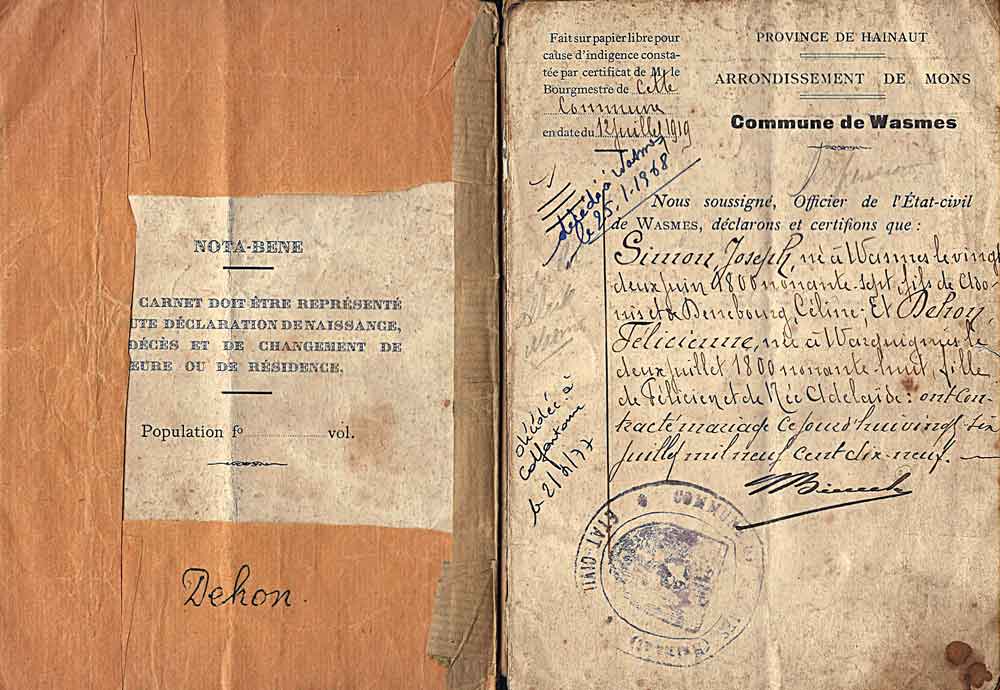 NOTA-BENE
CARNET DOIT ÊTRE REPRÉSENTÉ
UTE DÉCLARATION DE NAISSANCE,
DÉCÈS ET DE CHANGEMENT DE
EURE OU DE RÉSIDENCE.
Population fº vol.
Dehon
Fait sur papier libre pour
cause d'indigence consta-
tée par certificat de M. le
Bourgmestre de cette
Commune
en date du 12 juillet 1919
PROVINCE DE HAINAUT
ARRONDISSEMENT DE MONS
Commune de Wasmes
décédé à Wasmes
le 25.1.1968
Nous soussigné, Officier de l'État-civil
de WASMES, déclarons et certifions que :
Simon, Joseph, né à Wasmes le vingt
deux juin 1800 nonante-sept, fils de Ado-
nis et de Denebourg, Céline; Et Dehon,
Félicienne, née à Warquignies le
deux juillet 1800 nonante-huit, fille
de Félicien et de Née Adelaïde : ont con-
tracté mariage ce jourd'hui vingt-six
juillet mil neuf cent dix-neuf.
décédée à
le 2/ /77
ÉTAT-CIVIL